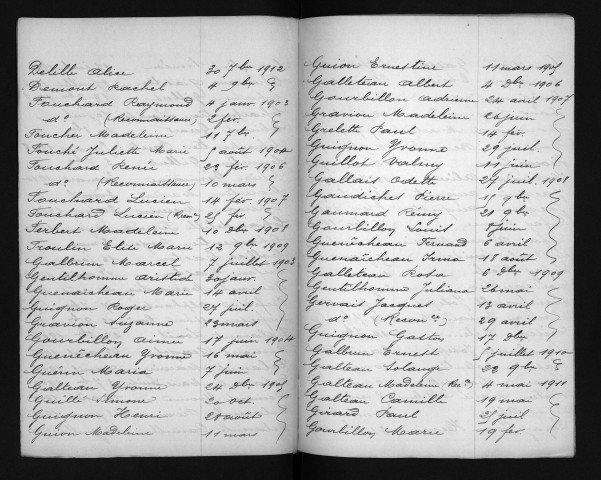 Delille Alice 30 7bre 1912
Demont Rachel 4 9bre
Fouchard Raymond 4 janv. 1903
do (Reconnaissance) 2 fév.
Foucher Madeleine 11 7bre
Fouché Juliette Marie 1 août 1904
Fouchard Renée 22 fév. 1906
do (Reconnaissance) 10 mars
Fouchard Lucien 14 fév. 1907
Fouchard Lucien (Recon.) 25 fév.
Ferbert Madeleine 10 Dbre 1908
Froulin Elite Marie 12 9bre 1909
Galbrun Marcel 7 juillet 1903
Gentilhomme Aristide 30 janv.
Guenaicheau Marie 14 avril
Guignon Roger 27 juil.
Guavion Suzanne 23 mars
Gourbillon Aimée 17 juin 1904
Guenécheau Yvonne 16 mai
Guérin Maria 7 juin
Galteau Yvonne 24 Dbre 1905
Guille Simone 20 oct.
Guignon Henri 28 août
Guion Madeleine 11 mars
Guion Ernestine 11 mars 1905
Galleteau Albert 4 Dbre 1906
Gourbillon Adrienne 24 avril 1907
Gravion Madeleine 26 juin
Grelette Paul 14 fév.
Guignon Yvonne 29 juil.
Guillot Valmy 19 juin
Gallais Odette 27 juil. 1908
Gaudichet Pierre 15 9bre
Gaumard Rémy 21 9bre
Gourbillon Louis 8 juin
Guenécheau Fernand 6 avril
Guenaicheau Irma 18 août
Galleteau Rosa 6 Dbre 1909
Gentilhomme Juliana 26 mai
Gervais Jacques 13 avril
do (Reconce) 29 avril
Guignon Gaston 17 Dbre
Galbrun Ernest 5 juillet 1910
Galteau Solange 22 9bre
Galteau Madeleine 4 mai 1911
Galteau Camille 19 mai
Girard Paul 21 juil
Gourbillon Marie 19 fév.